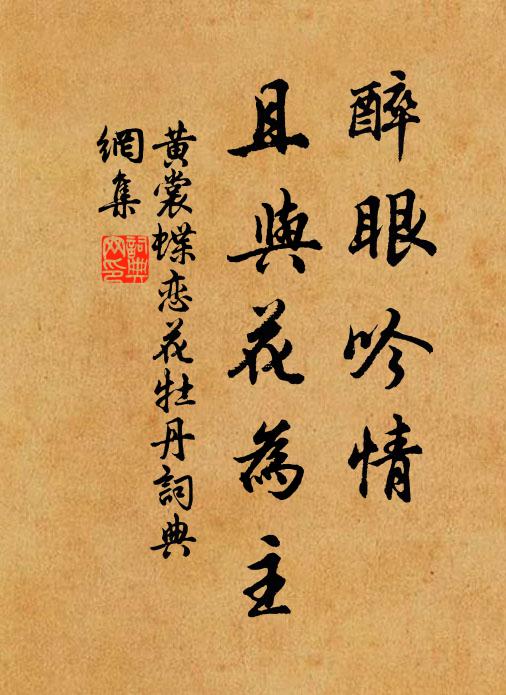 醉眼吟情
且與花為主
黃裳蝶恋花牡丹詞典
網集
詞典
网印